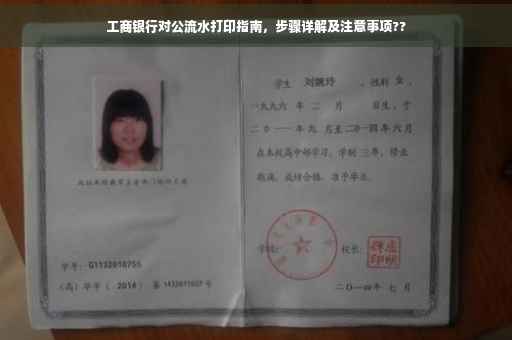 工商银行对公流水打印指南，步骤详解及注意事项??
学生 刘婉玲 ，性别 女 ，
一九九六 年 二 月 日生，于
二〇一一年九 月至二〇一四年六月
在本校高中部学习，学制 三年，修业
期满，成绩合格，准予毕业。
学校： 校长：
学号： G1132010755
（高）毕字（ 2014 ）第 1432011027 号
二〇一四年 七 月